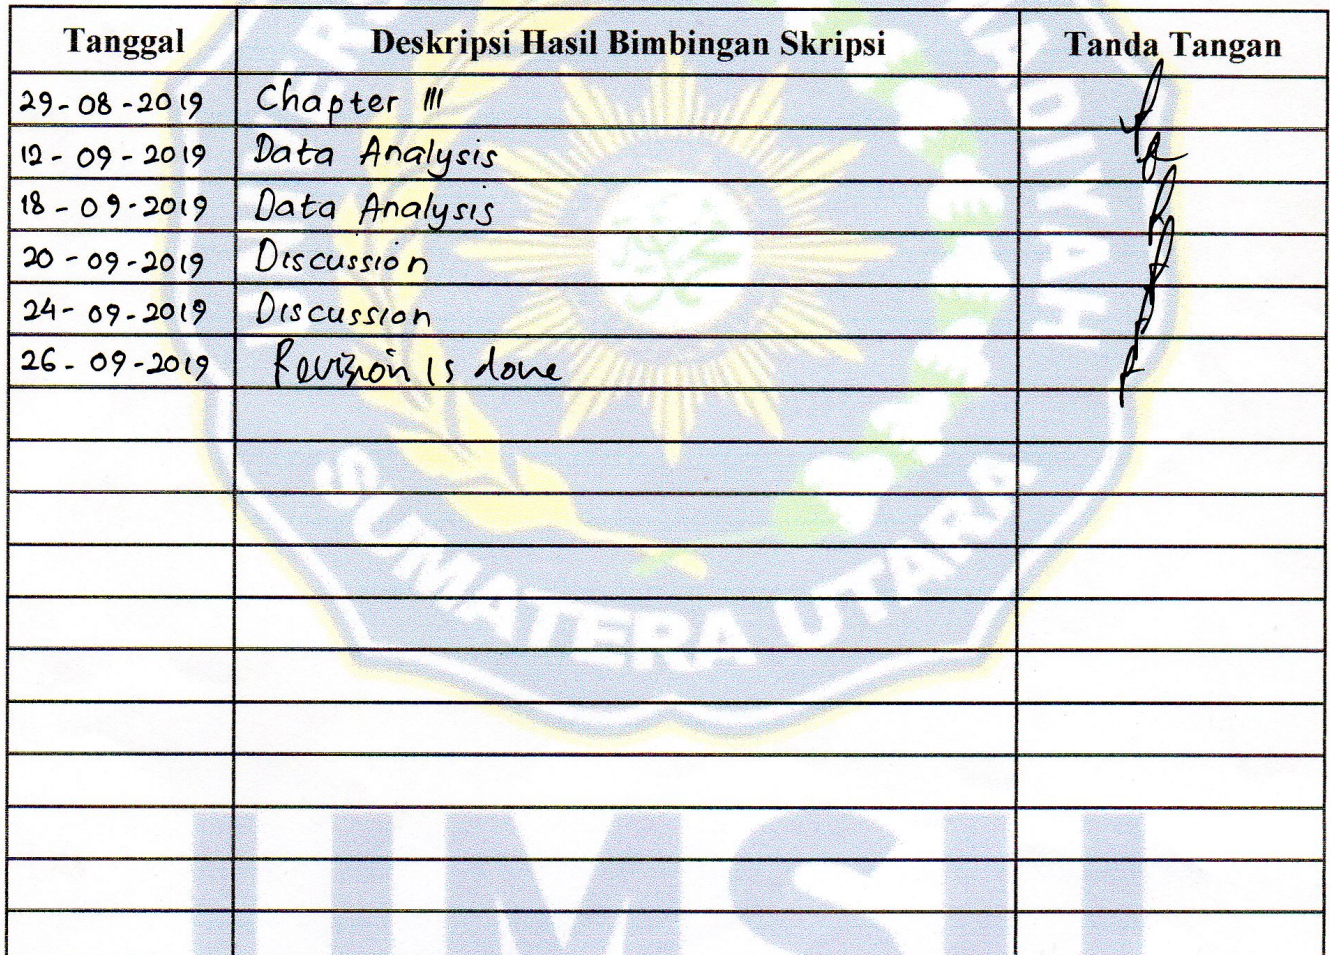 Tanggal Deskripsi Hasil Bimbingan Skripsi Tanda Tangan
29-08-2019 Chapter III
12-09-2019 Data Analysis
18-09-2019 Data Analysis
20-09-2019 Discussion
24-09-2019 Discussion
26-09-2019 Revision is done
SUMATERA UTARA
UMSU